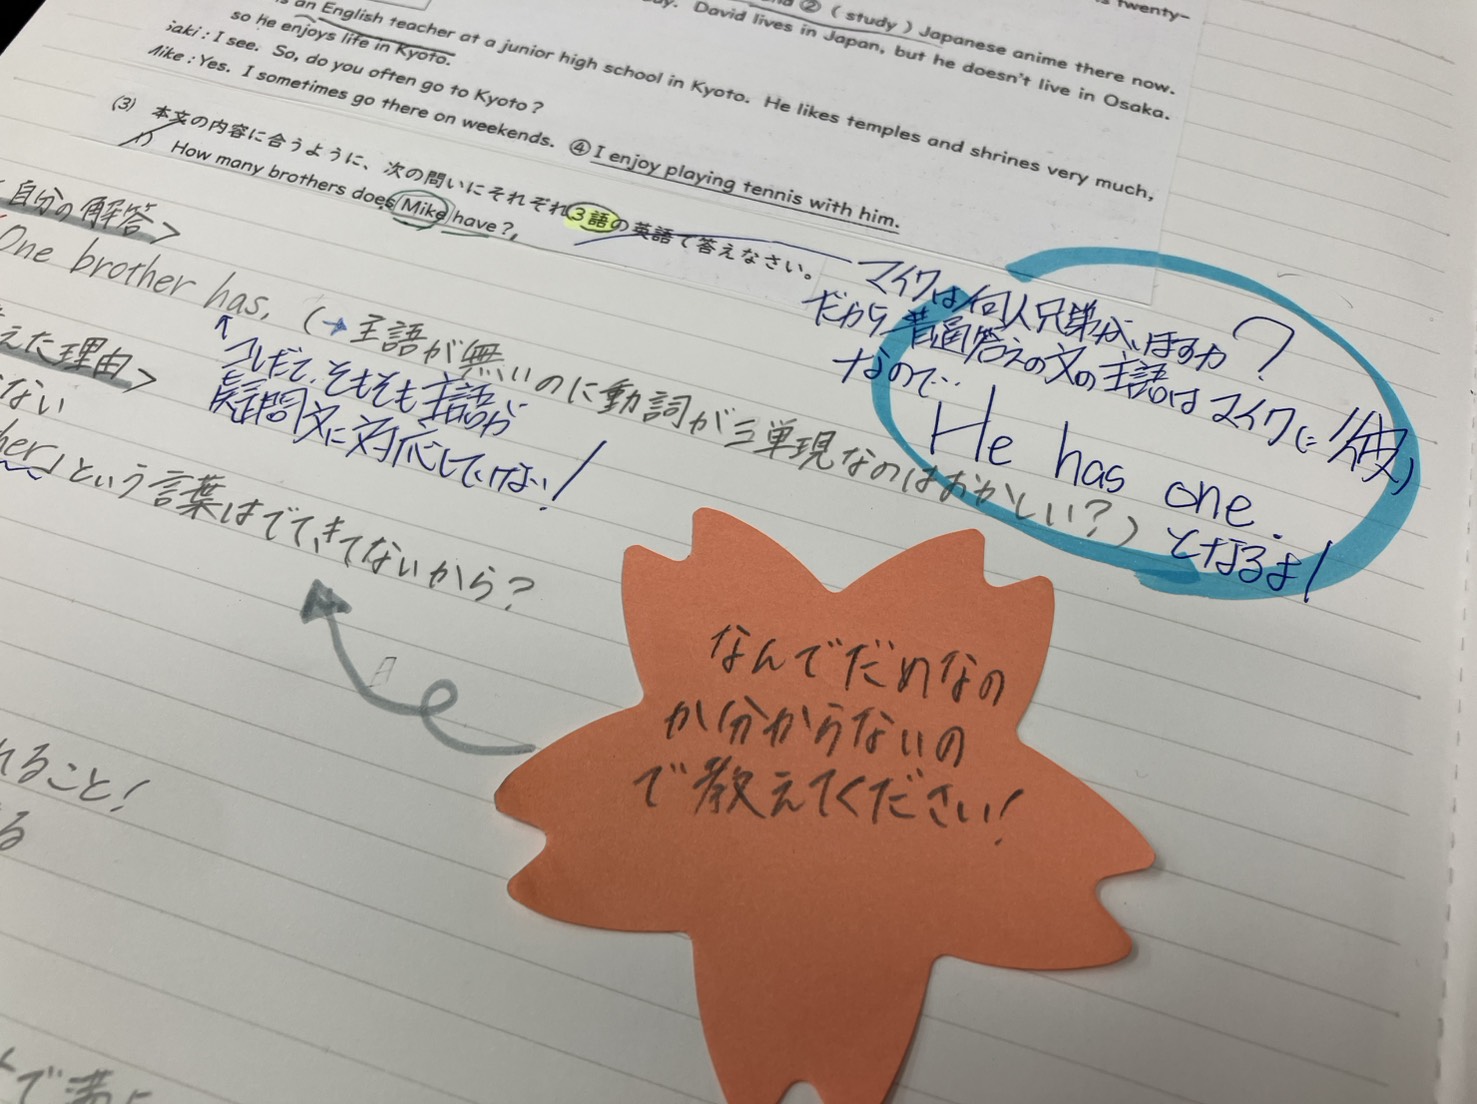 s twenty-
② ( study ) Japanese anime there now.
David lives in Japan, but he doesn't live in Osaka.
an English teacher at a junior high school in Kyoto. He likes temples and shrines very much,
so He enjoys life in Kyoto.
aki : I see. So, do you often go to Kyoto ?
Mike : Yes. I sometimes go there on weekends. ④ I enjoy playing tennis with him.
(3) 本文の内容に合うように、次の問いにそれぞれ3語の英語で答えなさい。
1) How many brothers does Mike have ?
自分の解答>
One brother has. (→主語が無いのに動詞が三単現なのはおかしい?)
えた理由>
ない
her」という言葉はでてきてないから?
そもそも主語が
疑問文に対応していない!
マイクは何人兄弟がいますか?
だから普通答えの文の主語はマイク(彼)
なので…
He has one.
となるよ!
なんでだめなの
か分からないの
で教えてください!
れること!
る
で満点